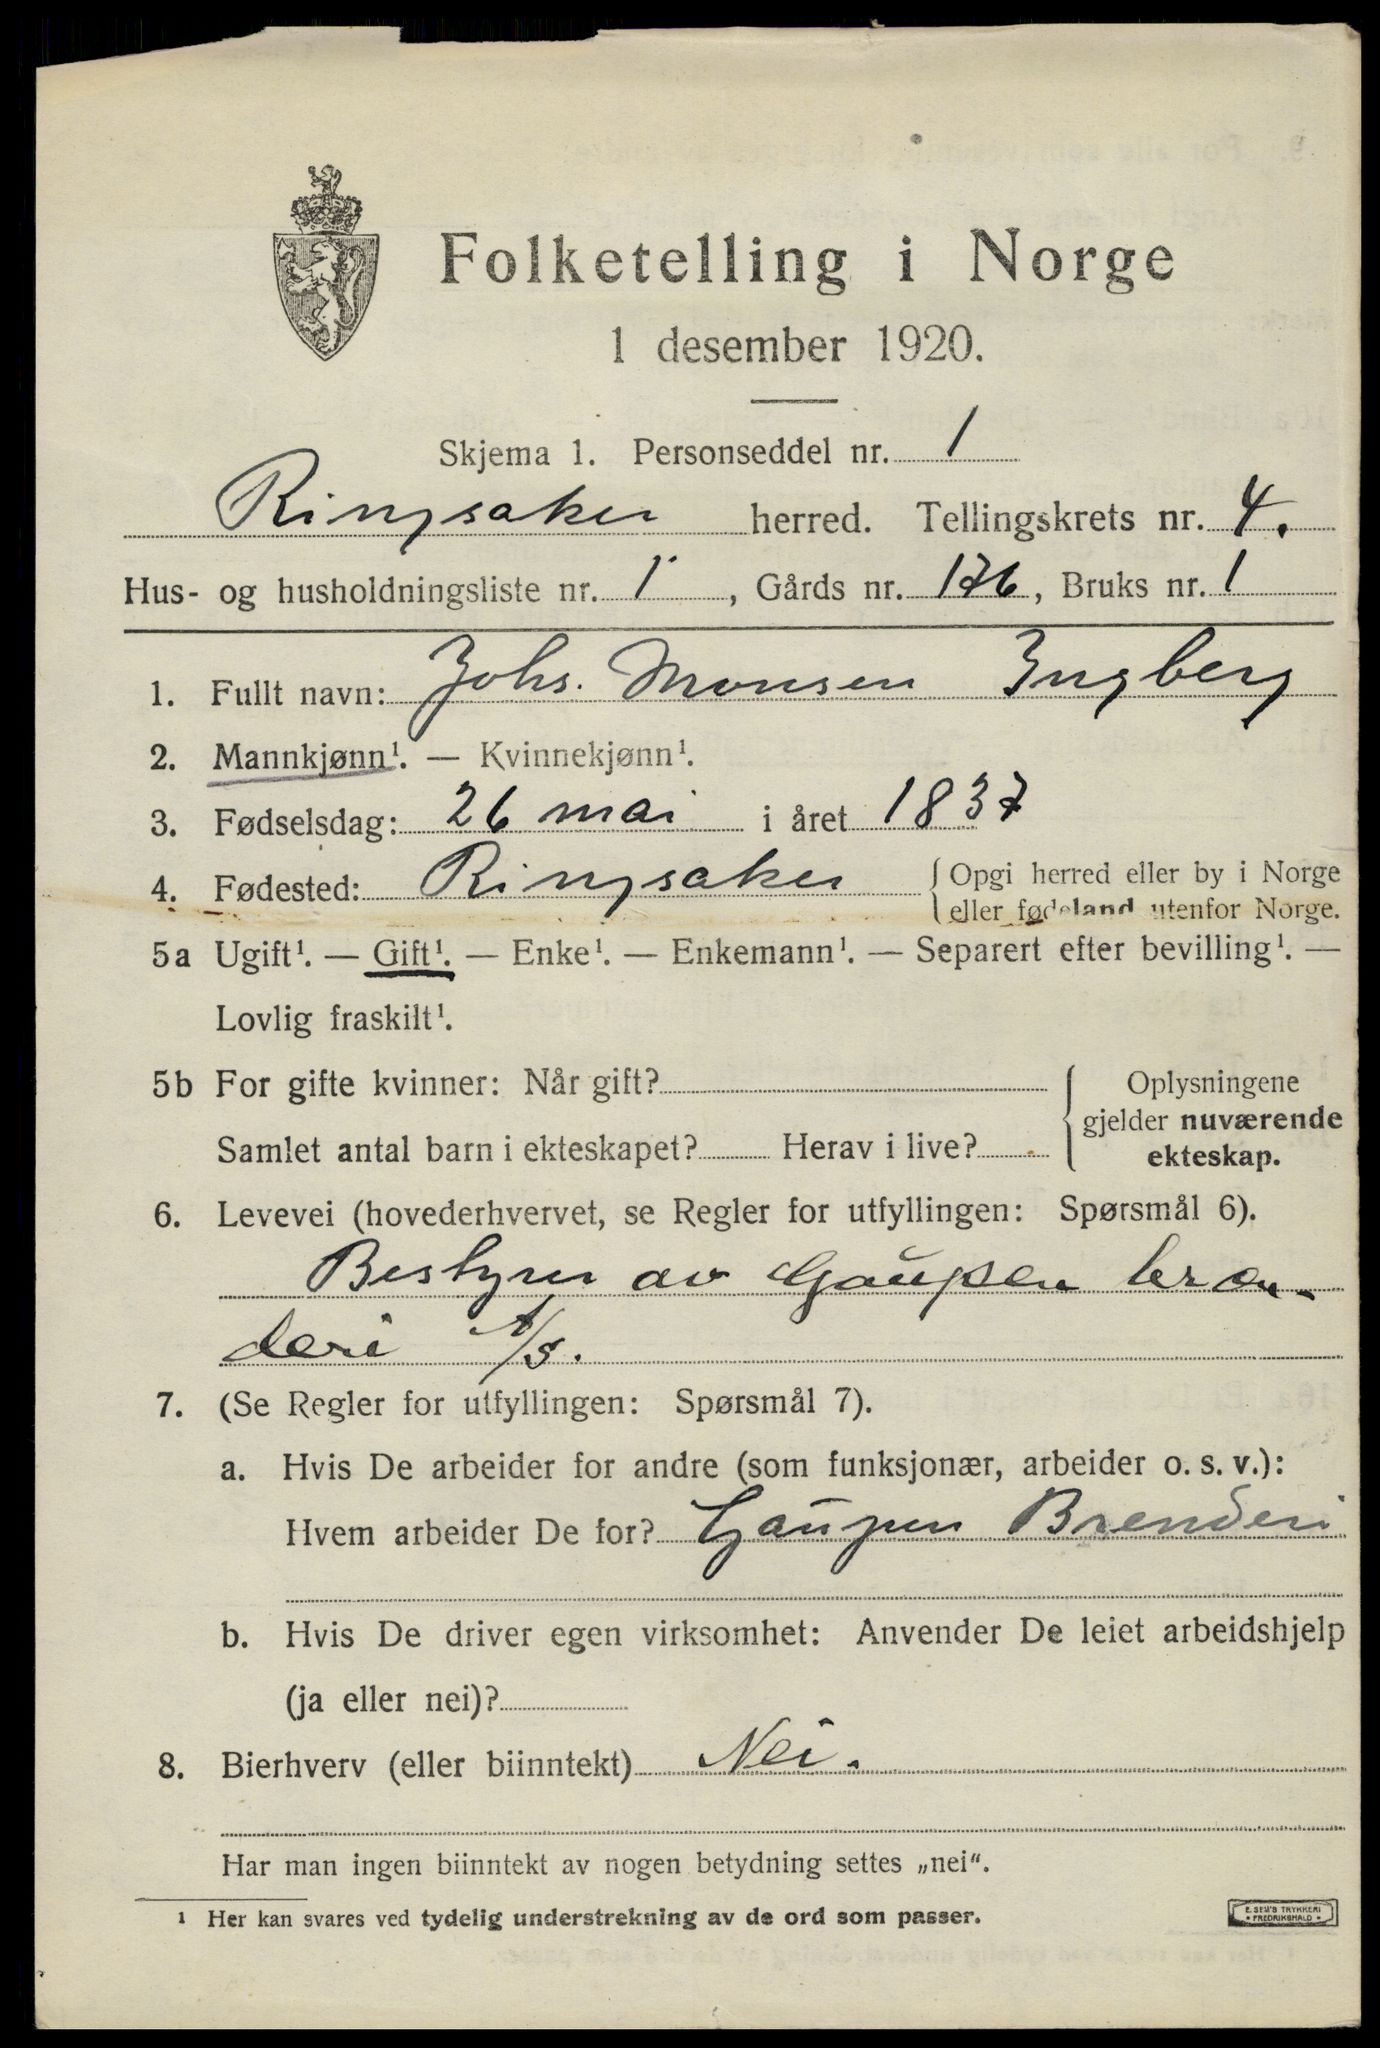 Folketelling i Norge
1 desember 1920.
Skjema 1. Personseddel nr. 1
Ringsaker herred. Tellingskrets nr. 4.
Hus- og husholdningsliste nr. 1, Gårds nr. 176, Bruks nr. 1
1. Fullt navn: Johs. Monsen Ingberg
2. Mannkjønn¹. — Kvinnekjønn¹.
3. Fødselsdag: 26 mai i året 1837
4. Fødested: Ringsaker {Opgi herred eller by i Norge
eller fødeland utenfor Norge.
5a Ugift¹. — Gift¹. — Enke¹. — Enkemann¹. — Separert efter bevilling¹. —
Lovlig fraskilt¹.
5b For gifte kvinner: Når gift?
Samlet antal barn i ekteskapet? Herav i live?
Oplysningene
gjelder nuværende
ekteskap.
6. Levevei (hovederhvervet, se Regler for utfyllingen: Spørsmål 6).
Bestyrer av Gaupen bræn-
deri A/S.
7. (Se Regler for utfyllingen: Spørsmål 7).
a. Hvis De arbeider for andre (som funksjonær, arbeider o. s. v.):
Hvem arbeider De for? Gaupen Brenderi
b. Hvis De driver egen virksomhet: Anvender De leiet arbeidshjelp
(ja eller nei)?
8. Bierhverv (eller biinntekt) Nei.
Har man ingen biinntekt av nogen betydning settes „nei“.
¹ Her kan svares ved tydelig understrekning av de ord som passer.
E. SEM'S TRYKKERI
• FREDRIKSHALD •